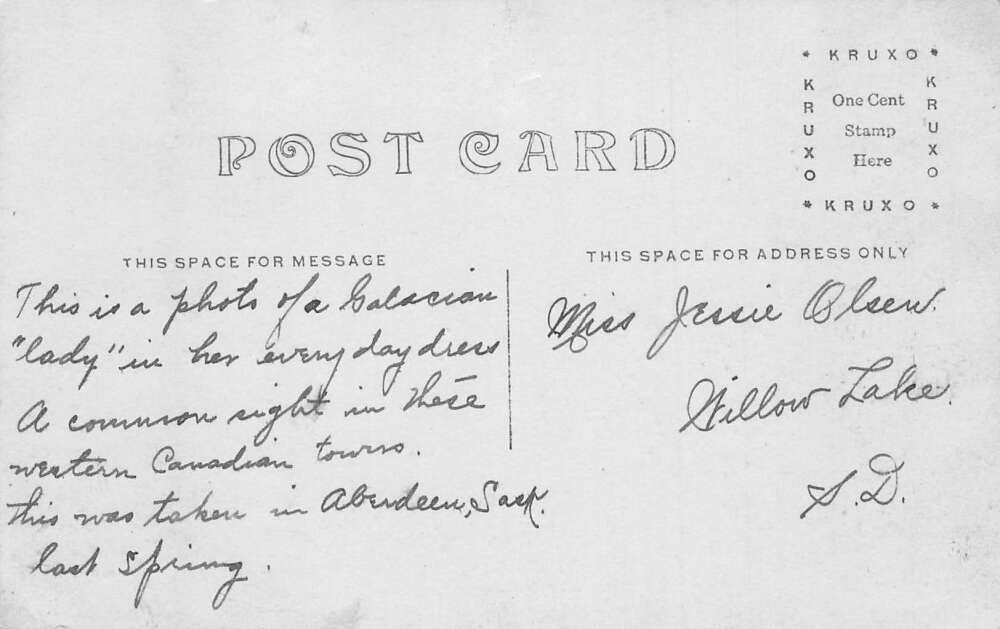 POST CARD
* KRUXO *
KRUXO
KRUXO
One Cent
Stamp
Here
* KRUXO *
THIS SPACE FOR MESSAGE
This is a photo of a Galacian
"lady" in her every day dress
A common sight in these
western Canadian towns.
This was taken in Aberdeen, Sask.
last Spring.
THIS SPACE FOR ADDRESS ONLY
Miss Jessie Olsen.
Willow Lake.
S.D.